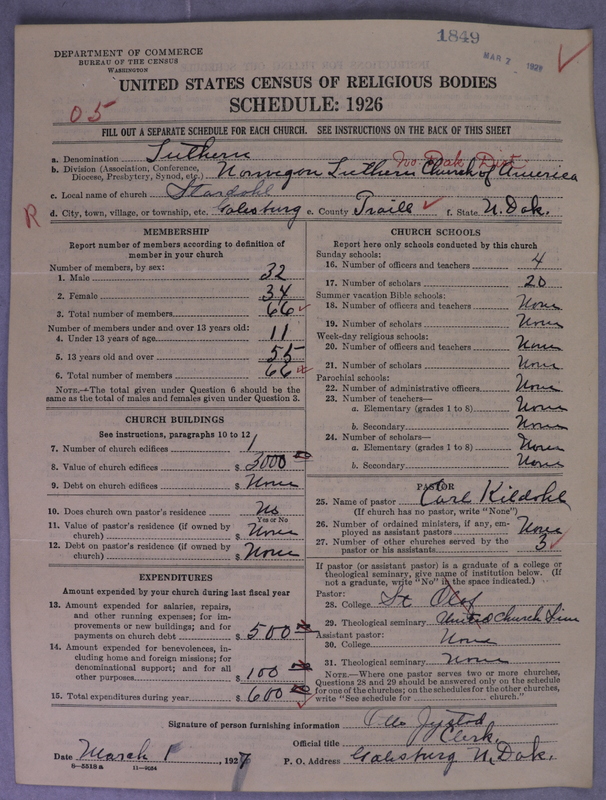 1849
MAR 2 1927
DEPARTMENT OF COMMERCE
BUREAU OF THE CENSUS
WASHINGTON
UNITED STATES CENSUS OF RELIGIOUS BODIES
SCHEDULE: 1926
05
FILL OUT A SEPARATE SCHEDULE FOR EACH CHURCH. SEE INSTRUCTIONS ON THE BACK OF THIS SHEET
a. Denomination Luthern
No Dak Dist
b. Division (Association, Conference, Diocese, Presbytery, Synod, etc.) Norwegon Luthern Church of America
c. Local name of church
R
d. City, town, village, or township, etc. Galesburg e. County Traill f. State N. Dak.
MEMBERSHIP
Report number of members according to definition of member in your church
Number of members, by sex:
1. Male 32
2. Female 34
3. Total number of members 66
Number of members under and over 13 years old:
4. Under 13 years of age 11
5. 13 years old and over 55
6. Total number of members 66
NOTE.—The total given under Question 6 should be the same as the total of males and females given under Question 3.
CHURCH BUILDINGS
See instructions, paragraphs 10 to 12
7. Number of church edifices 1
8. Value of church edifices $ 3000 00
9. Debt on church edifices $ None
10. Does church own pastor's residence No
Yes or No
11. Value of pastor's residence (if owned by church) $ None
12. Debt on pastor's residence (if owned by church) $ None
EXPENDITURES
Amount expended by your church during last fiscal year
13. Amount expended for salaries, repairs, and other running expenses; for improvements or new buildings; and for payments on church debt $ 500 00
14. Amount expended for benevolences, including home and foreign missions; for denominational support; and for all other purposes $ 100 00
15. Total expenditures during year $ 600 00
CHURCH SCHOOLS
Report here only schools conducted by this church
Sunday schools:
16. Number of officers and teachers 4
17. Number of scholars 20
Summer vacation Bible schools:
18. Number of officers and teachers None
19. Number of scholars None
Week-day religious schools:
20. Number of officers and teachers None
21. Number of scholars None
Parochial schools:
22. Number of administrative officers None
23. Number of teachers—
a. Elementary (grades 1 to 8) None
b. Secondary None
24. Number of scholars—
a. Elementary (grades 1 to 8) None
b. Secondary None
PASTOR
25. Name of pastor Carl Kildahl
(If church has no pastor, write "None")
26. Number of ordained ministers, if any, employed as assistant pastors None
27. Number of other churches served by the pastor or his assistants 3
If pastor (or assistant pastor) is a graduate of a college or theological seminary, give name of institution below. (If not a graduate, write "No" in the space indicated.)
Pastor:
28. College St Olaf
29. Theological seminary United Church Sem
Assistant pastor:
30. College None
31. Theological seminary None
NOTE.—Where one pastor serves two or more churches, Questions 28 and 29 should be answered only on the schedule for one of the churches; on the schedules for the other churches, write "See schedule for church."
Signature of person furnishing information
Official title Clerk
Date March 1, 1927
P. O. Address Galesburg N. Dak.
8—5518 a 11—9034